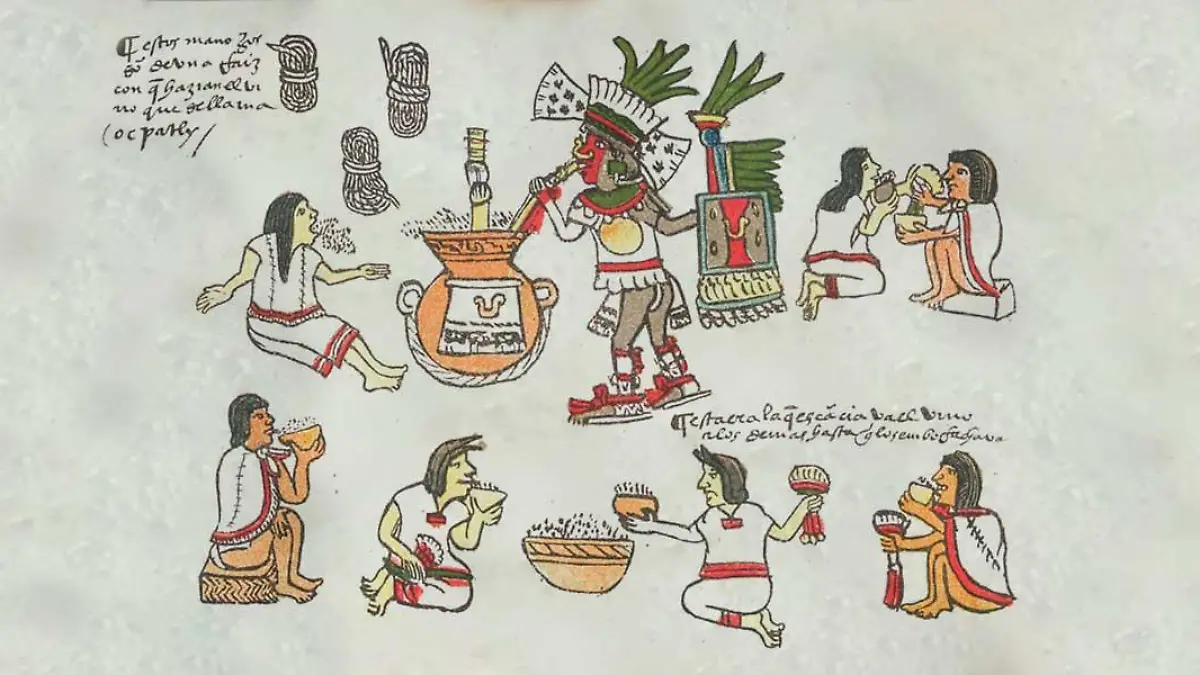 ¶ estos manoxos
sō de vna raiz
con q̄ hazian el vi
no que se llama
(ocpatly/
¶ esta era la q̄ escācia va el vino
a los demas hasta q̄ los enbo Rachava